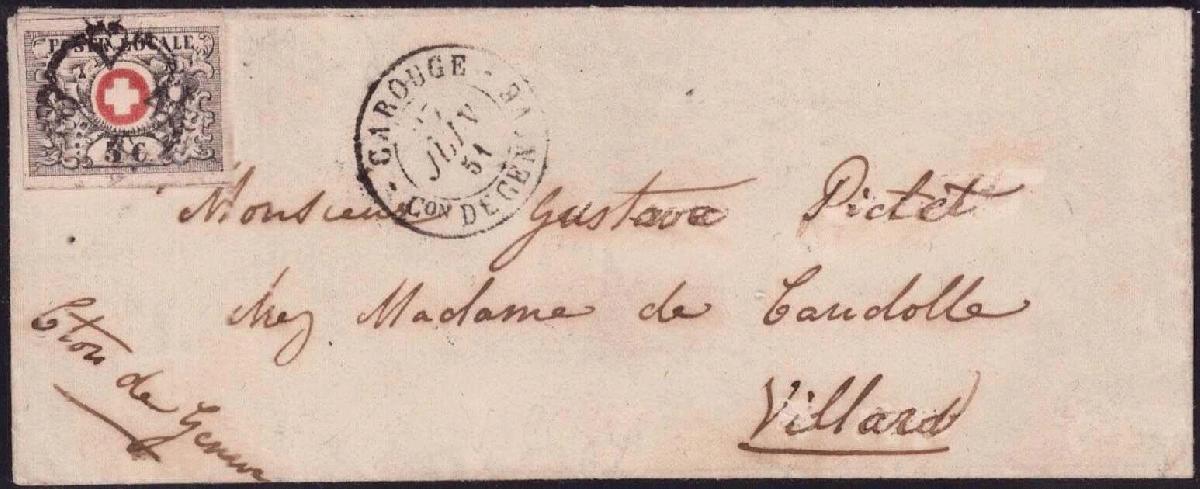 POSTE LOCALE
5 C
CAROUGE
JUIV
51
CON DE GENEVE
Monsieur Gustave Pictet
chez Madame de Candolle
Villard
Cton de Geneve